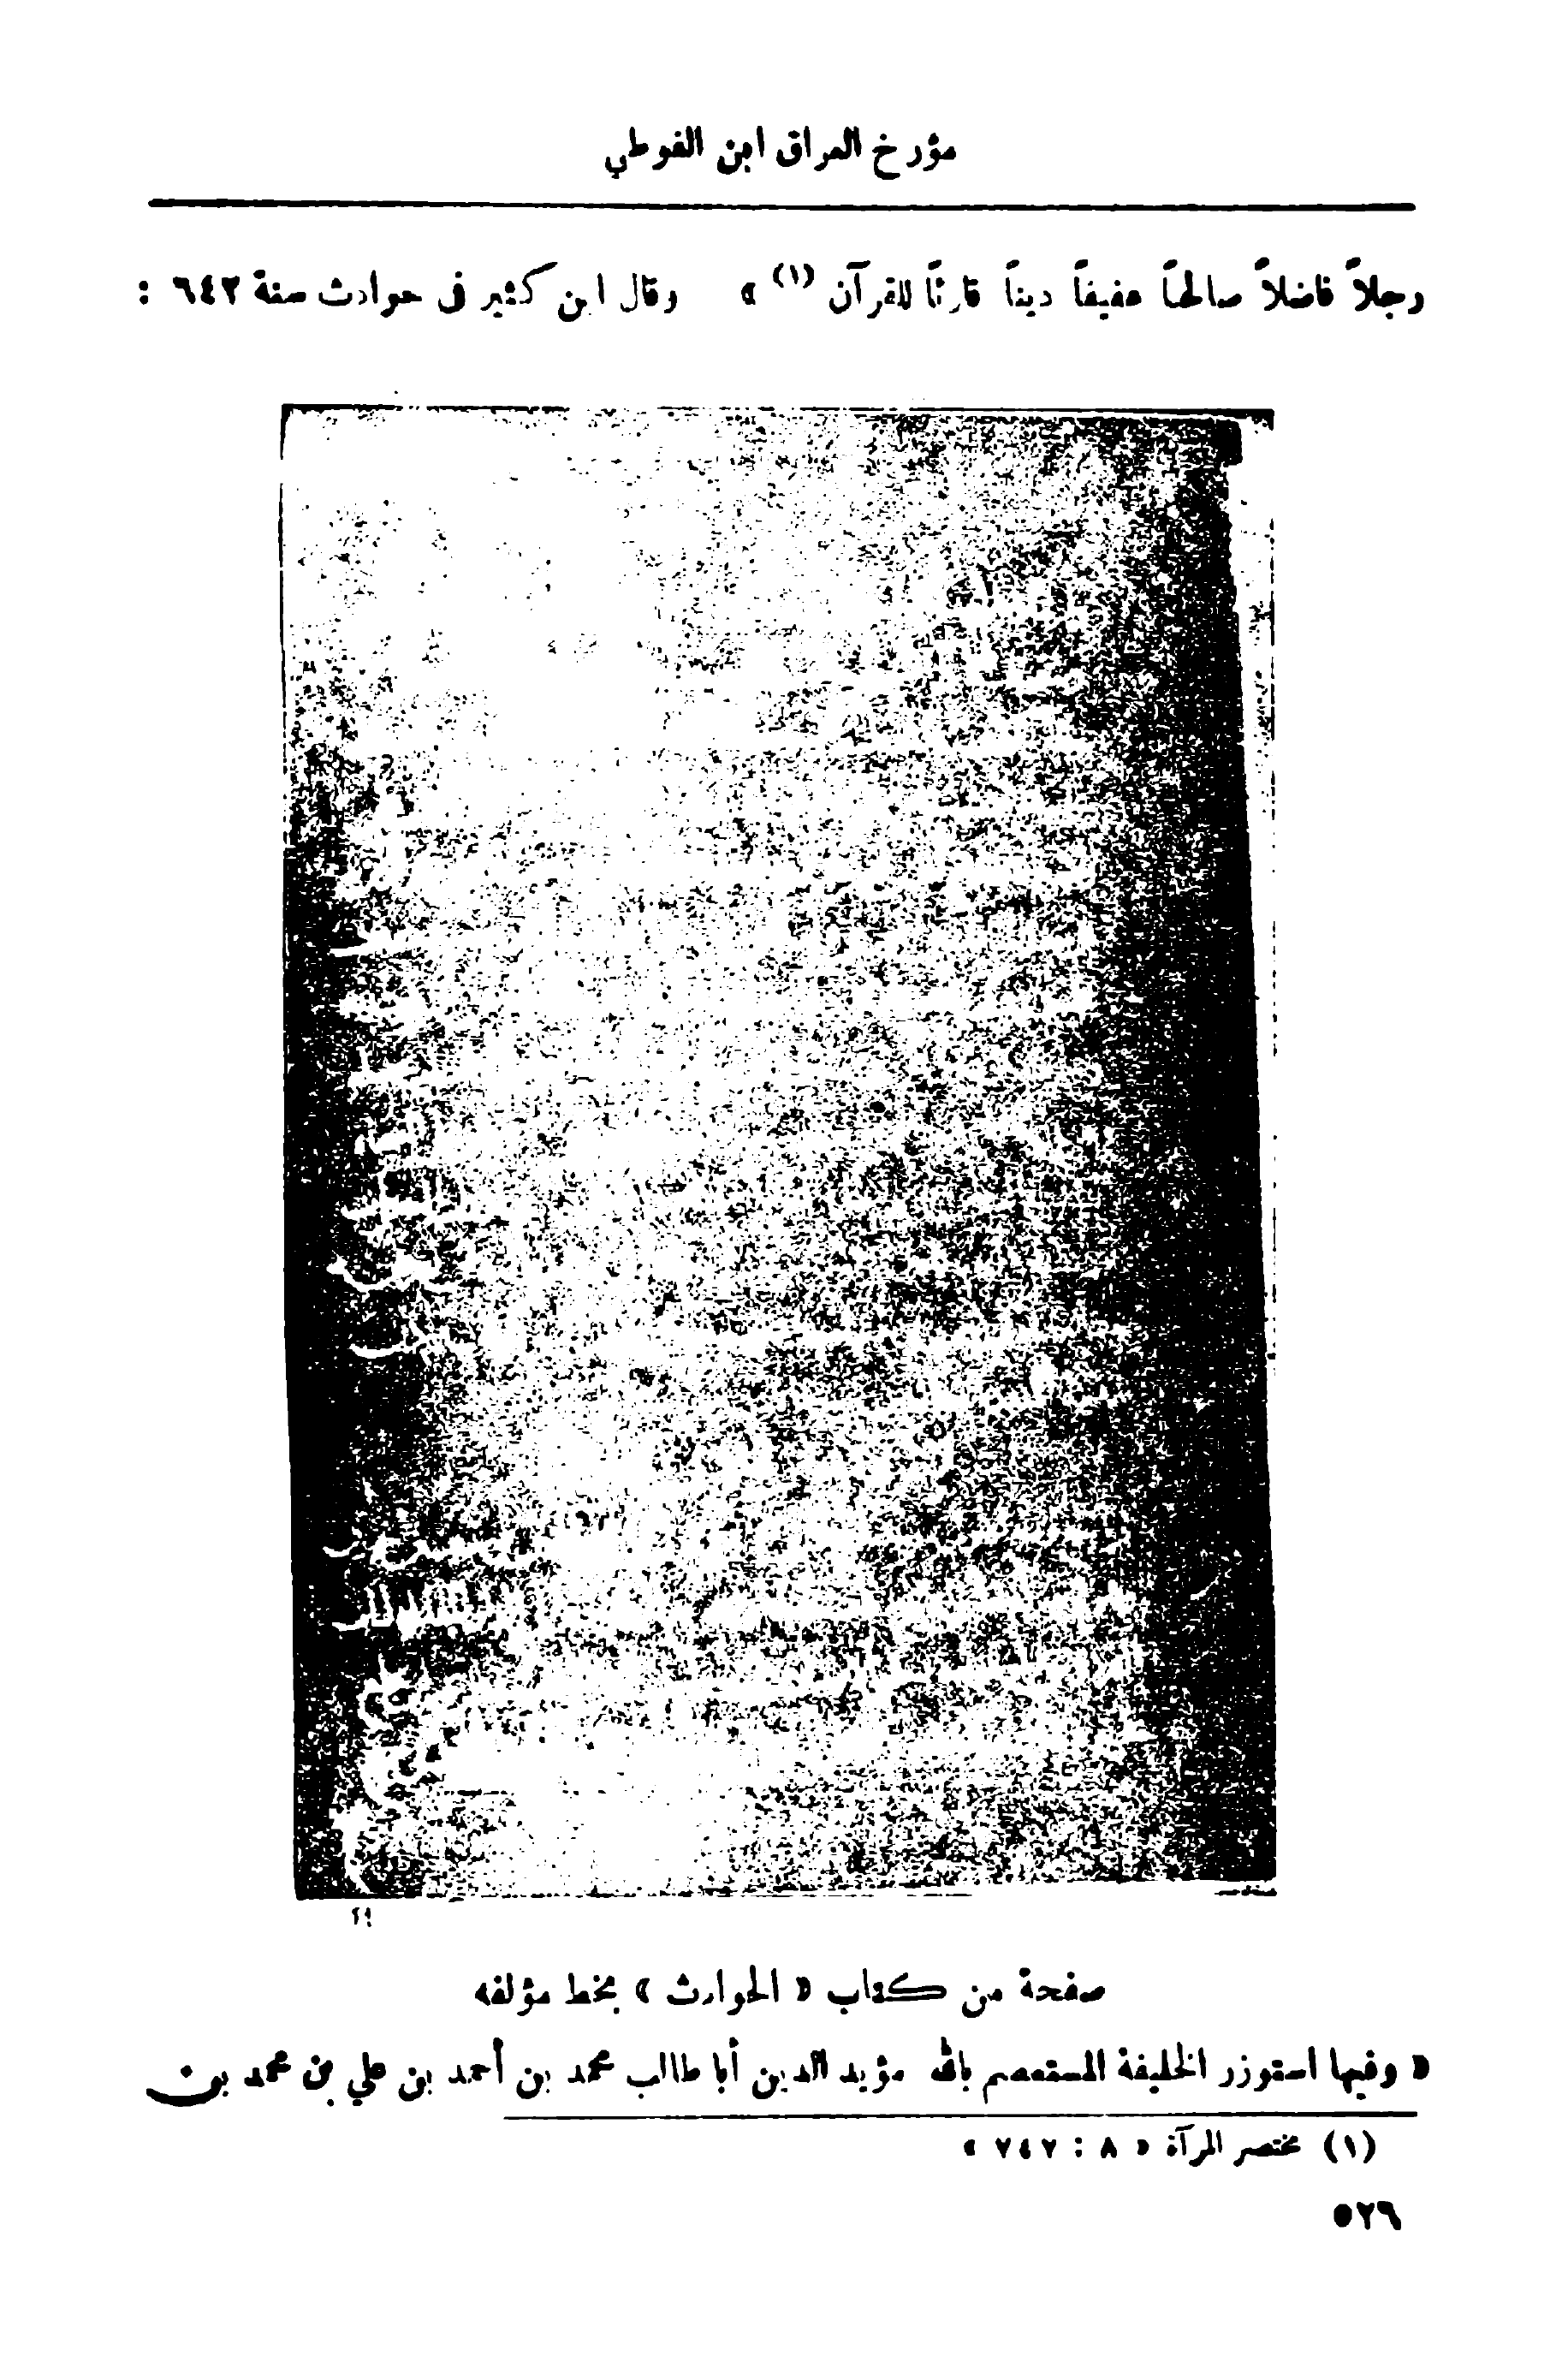 مؤرخ العراق ابن الفوطي
رجلاً فاضلاً صالحاً عفيفاً ديناً قارئاً للقرآن (١) » وقال ابن كثير في حوادث سنة ٦٤٢ :
صفحة من كتاب « الحوادث » بخط مؤلفه
« وفيها استوزر الخليفة المستعصم بالله مؤيد الدين أبا طالب محمد بن أحمد بن علي بن محمد بن
(١) مختصر المرآة « ٨ : ٧٤٧ »
٥٢٦